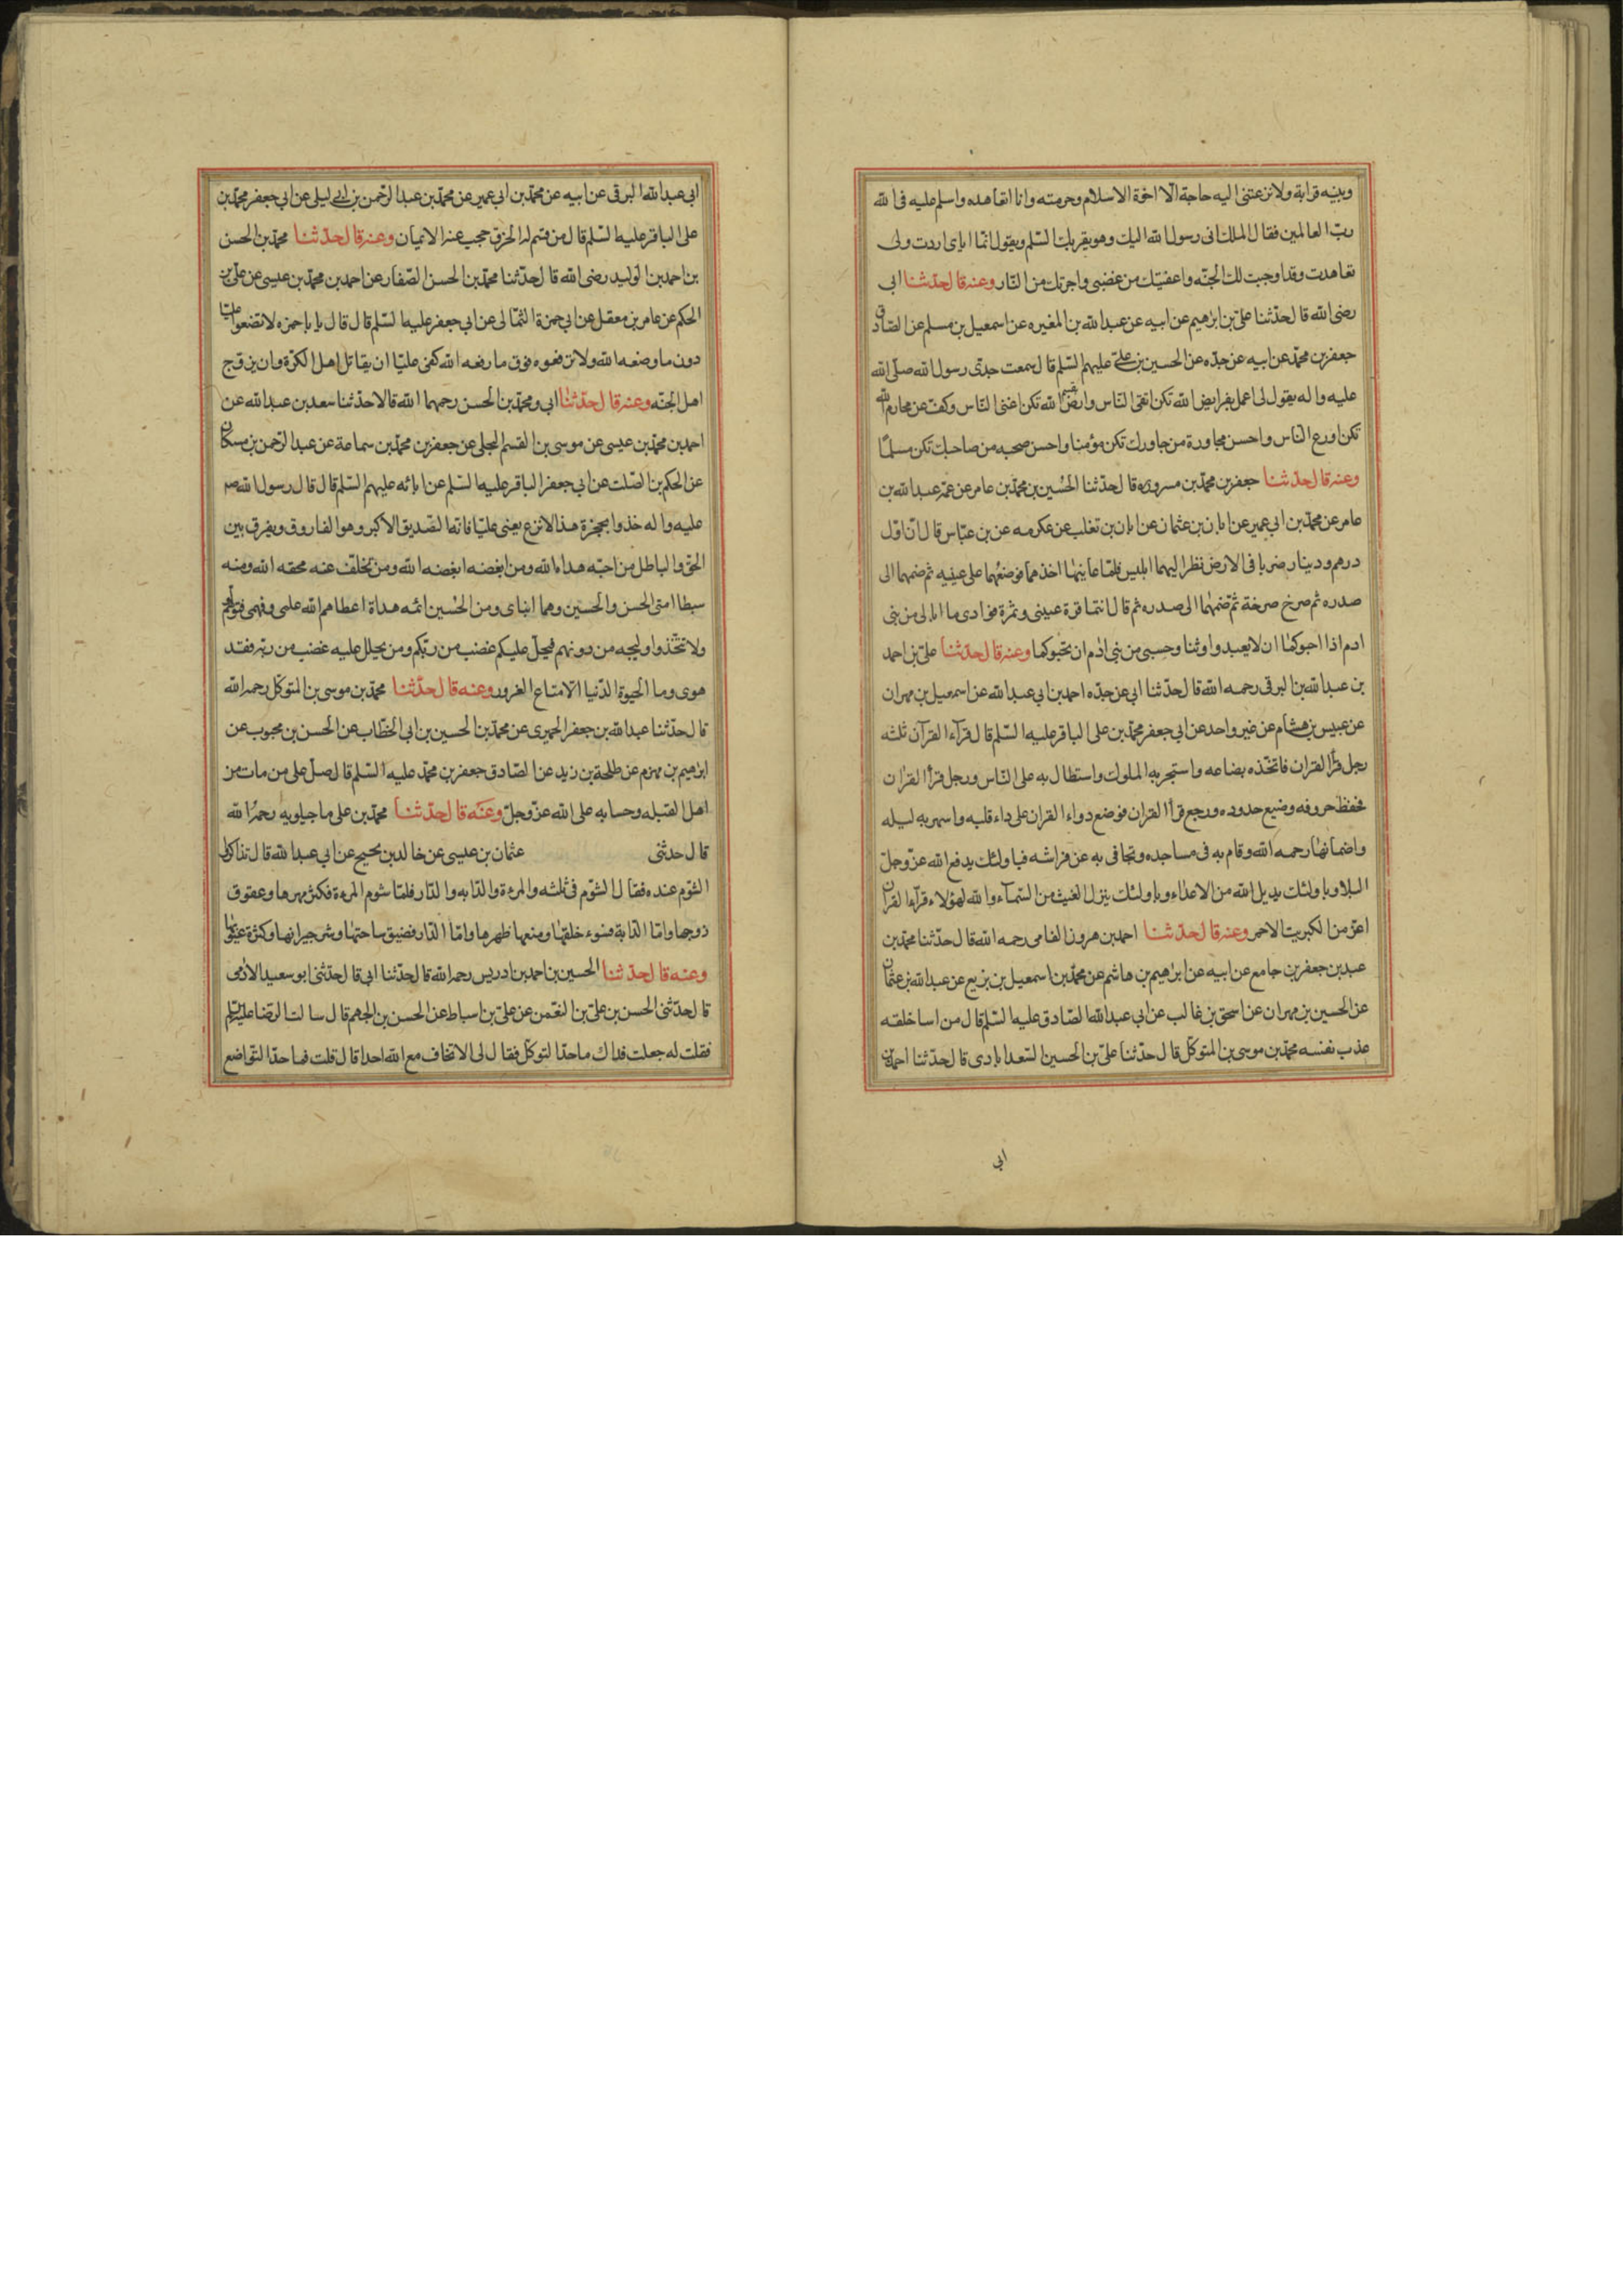 وبينه قرابة ولا نزعتنی اليه حاجة الا اخوة الاسلام وحرمته وانا اتعاهده واسلم عليه فی الله
ربّ العالمين فقال الملك انی رسول الله اليك وهو يقريك السّلم ويقول انّما ایای اردت ولی
تعاهدت وقد اوجبت لك الجنّه واعفيتك من غضبی واجرتك من النّار وعنه قال حدّثنا ابی
رضی الله قال حدّثنا علیّ بن ابرٰهيم عن ابيه عن عبد الله بن المغيره عن اسمعيل بن مسلم عن الصّادق
جعفر بن محمّد عن ابيه عن جدّه عن الحسين بن علیّ عليهم السّلم قال سمعت جدّی رسول الله صلّی الله
عليه واله يقول لی اعمل بفرايض الله تكن اتقی النّاس وارض بقسم الله تكن اغنی النّاس وكفّ عن محارم الله
تكن اورع النّاس واحسن مجاورة من جاورك تكن مؤمنا واحسن صحبه من صاحبك تكن مسلمًا
وعنه قال حدّثنا جعفر بن محمّد بن مسروره قال حدّثنا الحُسين بن محمّد بن عامر عن عمّه عبد الله بن
عامر عن محمّد بن ابی عمير عن ابان بن عثمان عن ابان بن تغلب عن عكرمه عن بن عبّاس قال انّ اوّل
درهم ودينار ضربا فی الارض نظر اليهما ابليس فلمّا عاينهما اخذهما فوضعهُما علی عينيه ثم ضمهما الی
صدره ثم صرخ صرخة ثمّ ضمّهٰما الی صدره ثم قال انتما قرة عينی وثمرة فوادی ما ابالی من بنی
ادم اذا احبوكما ان لا يعبدوا وثنا وحسبی من بنی اٰدم ان يحبّوكما وعنه قال حدّثنا علیّ بن احمد
بن عبد الله بن البرقی رحمه الله قال حدّثنا ابی عن جدّه احمد بن ابی عبد الله عن اسمعيل بن مهران
عن عبيس بن هشام عن غير واحد عن ابی جعفر محمّد بن علی الباقر عليه السّلم قال قرآء القرآن ثلثه
رجل قرأ القران فاتخّذه بضاعه واستجر به الملوك واستطال به علی النّاس ورجل قرأ القرٰان
فحفظ حروفه وضيع حدوده ورجع قرأ القران فوضع دواء القران علی داء قلبه واسهر به ليله
واضما نهاره رحمه الله وقام به فی مساجده وتجافی به عن فراشه فباولئك يدفع الله عزّ وجلّ
البلا وباولئك يديل الله من الاعداء وباولئك ينزل الغيث من السّمآء والله لهؤلاء قرآء القران
اعزّ من الكبريت الاحمر وعنه قال حدّثنا احمد بن هرون الفامی رحمه الله قال حدّثنا محمّد بن
عبد بن جعفر بن جامع عن ابيه عن ابرٰهيم بن هاشم عن محمّد بن اسمعيل بن بزيع عن عبد الله بن عثمان
عن الحسين بن مهران عن اسحق بن غالب عن ابی عبد الله الصّادق عليه السّلم قال من اسا خلقه
عذب نفسه محمّد بن موسی بن المتوكّل قال حدّثنا علیّ بن الحسين السّعدابادی قال حدّثنا احمد بن
ابی
ابی عبد الله البرقی عن ابيه عن محمّد بن ابی عمير عن محمّد بن عبد الرّحمن بن ابی ليلی عن ابی جعفر محمّد بن
علی الباقر عليه السّلم قال من قسم له الخرق حجب عنه الايمان وعنه قال حدّثنا محمّد بن الحسن
بن احمد بن الوليد رضی الله قال حدّثنا محمّد بن الحسن الصّفار عن احمد بن محمّد بن عيسی عن علیّ بن
الحكم عن عامر بن معقل عن ابی حمزة الثّمالی عن ابی جعفر عليه السّلم قال قال يا باحمزه لا تضعوا عليّا
دون ما وضعه الله ولا ترفعوه فوق ما رفعه الله كفی عليّا ان يقاتل اهل الكرّة وان يزوّج
اهل الجنّه وعنه قال حدّثنا ابی ومحمّد بن الحسن رحمهما الله قالا حدّثنا سعد بن عبد الله عن
احمد بن محمّد بن عيسی عن موسی بن القسم البجلی عن جعفر بن محمّد بن سماعة عن عبد الرّحمن بن مسكان
عن الحكم بن الصّلت عن ابی جعفر الباقر عليه السّلم عن ابائه عليهم السّلم قال قال رسول الله صم
عليه واله خذوا بحجزة هذا الانزع يعنی عليّا فانّه الصّديق الاكبر وهو الفاروق ويفرق بين
الحق والباطل من احبّه هداه الله ومن ابغضه ابغضه الله ومن تخلّف عنه محقه الله ومنه
سبطا امتی الحسن والحسين وهما ابنای ومن الحُسين ائمه هداة اعطاهم الله علمی وفهمی فتولّوهم
ولا تتّخذوا وليجه من دونهم فيحلّ عليكم غضب من ربّكم ومن يحلل عليه غضب من ربّه فقد
هوی وما الحيوة الدّنيا الا متاع الغرور وعنه قال حدّثنا محمّد بن موسی بن المتوكّل رحمه الله
قال حدّثنا عبد الله بن جعفر الحميری عن محمّد بن الحسين بن ابی الخطّاب عن الحسن بن محبوب عن
ابرهيم بن مهزم عن طلحة بن زيد عن الصّادق جعفر بن محمّد عليه السّلم قال صلّ علی من مات من
اهل القبله وحسابه علی الله عزّ وجلّ وعنه قال حدّثنا محمّد بن علی ماجيلويه رحمه الله
قال حدثنی عثمان بن عيسی عن خالد بن نجيح عن ابی عبد الله قال تذاكروا
الشّوم عنده فقال الشّوم فی ثلثه والمرءة والدّابه والدّار فلمّا شوم المرءة فكثر مهرها وعقوق
زوجها وامّا الدّابة فسوء خلقهٰا ومنعها ظهرها وامّا الدّار فضيق ساحتهٰا وشر جيرانها وكثرة عيوبها
وعنه قال حدّثنا الحسين بن احمد بن ادريس رحمه الله قال حدّثنا ابی قال حدّثنی ابو سعيد الادٰمی
قال حدّثنی الحسن بن علیّ بن النعمٰن عن علیّ بن اسباط عن الحسن بن الجهم قال سالت الرّضا عليه السّلم
فقلت له جعلت فداك ما حدّ التوكّل فقال لی الا تخاف مع الله احدا قال قلت فما حدّ التّواضع